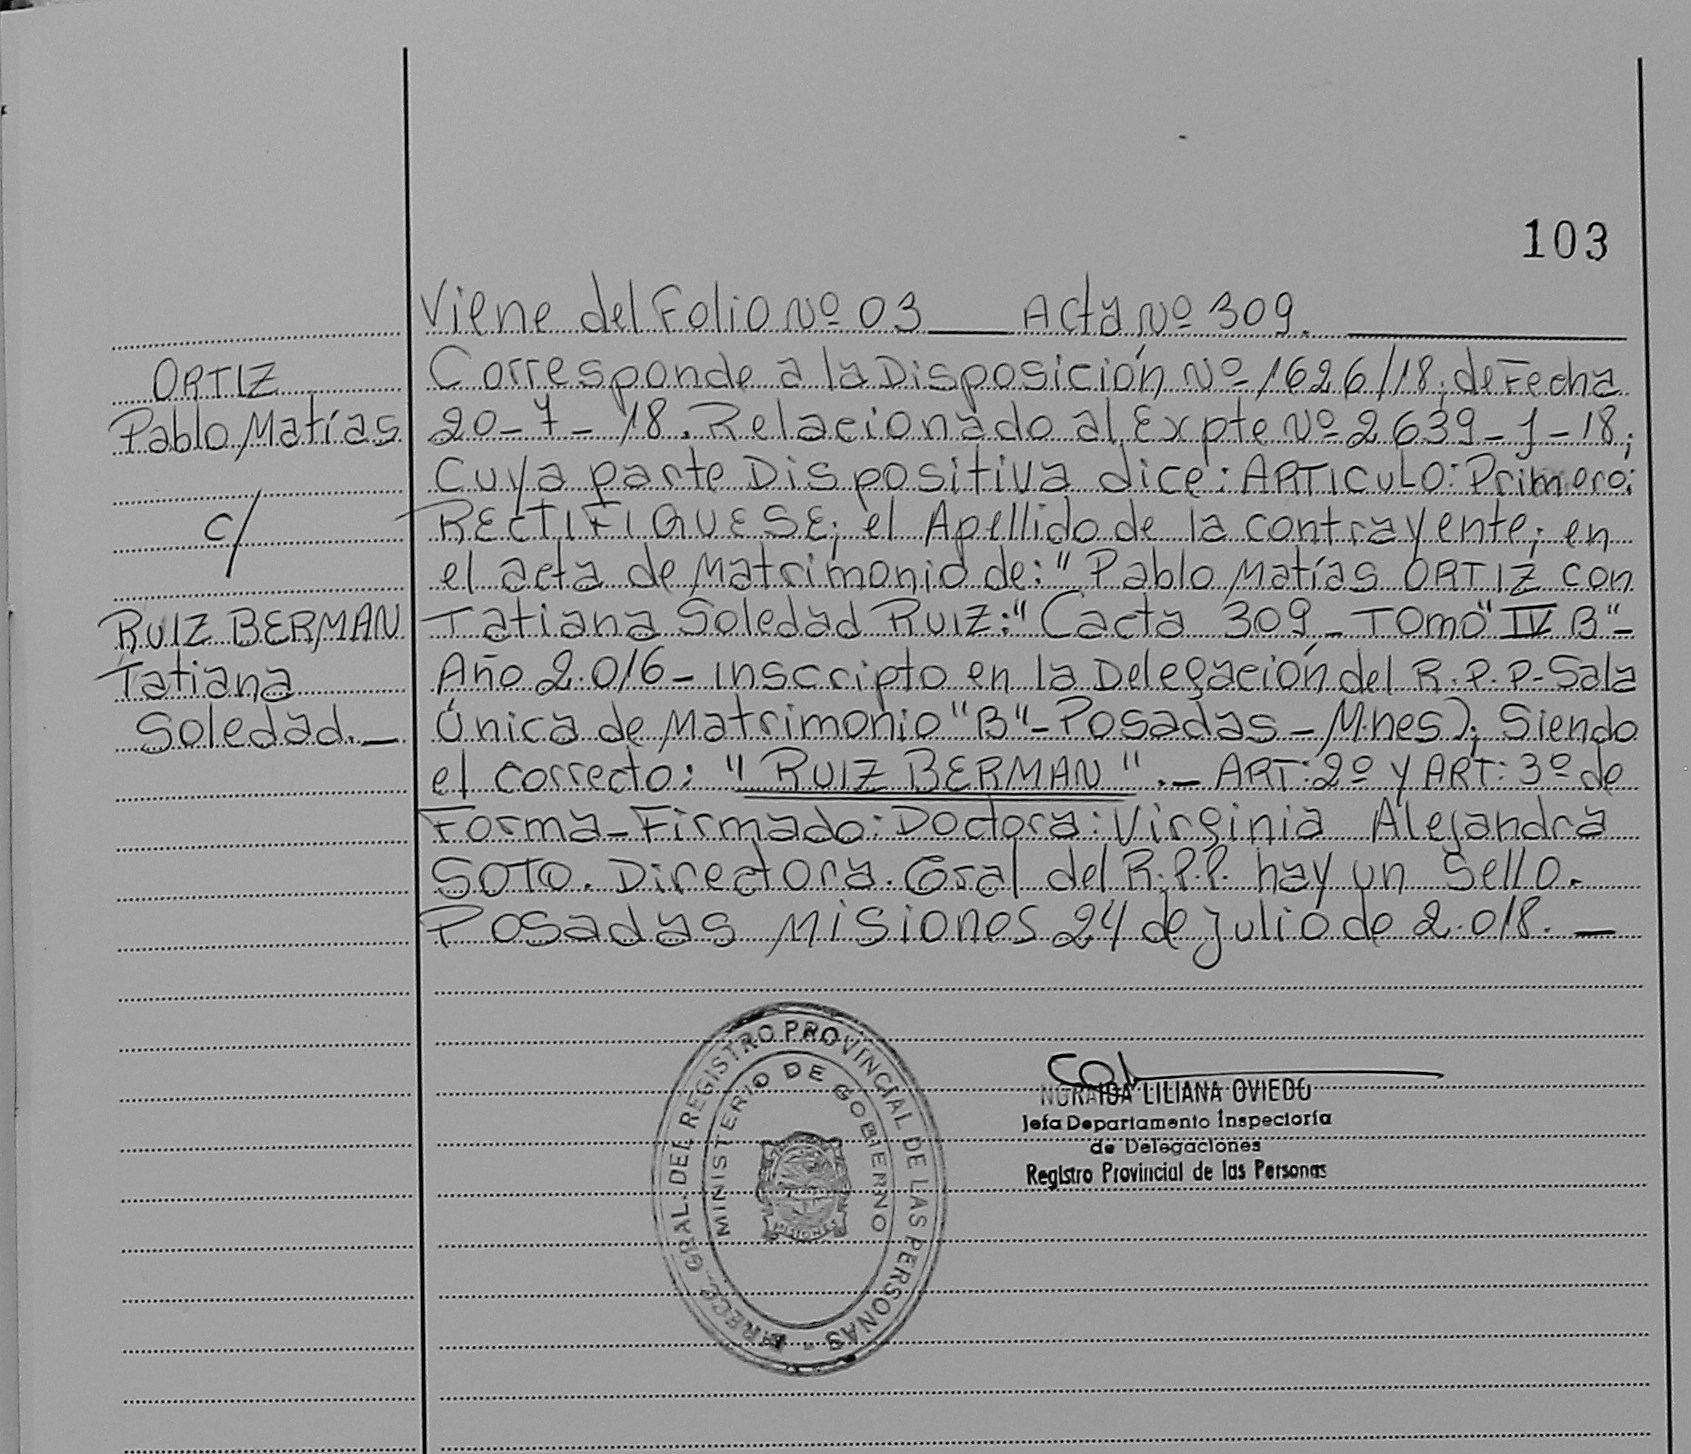 103
Viene del Folio Nº 03 ___ Acta Nº 309. ___
ORTIZ
Pablo Matías
c/
RUIZ BERMAN
Tatiana
Soledad._
Corresponde a la Disposición Nº 1626/18, de Fecha
20-7-18. Relacionado al Expte Nº 2639-J-18;
Cuya parte Dispositiva dice: ARTICULO: Primero:
RECTIFIQUESE; el Apellido de la contrayente; en
el acta de Matrimonio de: "Pablo Matías ORTIZ con
Tatiana Soledad RUIZ:" (acta 309_ TOMO "IV B"_
Año 2.016_ inscripto en la Delegación del R.P.P-Sala
Única de Matrimonio "B"_ Posadas - M.nes); Siendo
el correcto: "RUIZ BERMAN"._ ART: 2º Y ART: 3º de
Forma_Firmado: Doctora: Virginia Alejandra
SOTO. Directora. Gral del R.P.P. hay un Sello.
Posadas Misiones 24 de julio de 2.018. _
DIRECC. GRAL. DEL REGISTRO PROVINCIAL DE LAS PERSONAS -
MINISTERIO DE GOBIERNO
MISIONES
NORAIDA LILIANA OVIEDO
Jefa Departamento Inspectoría
de Delegaciones
Registro Provincial de las Personas